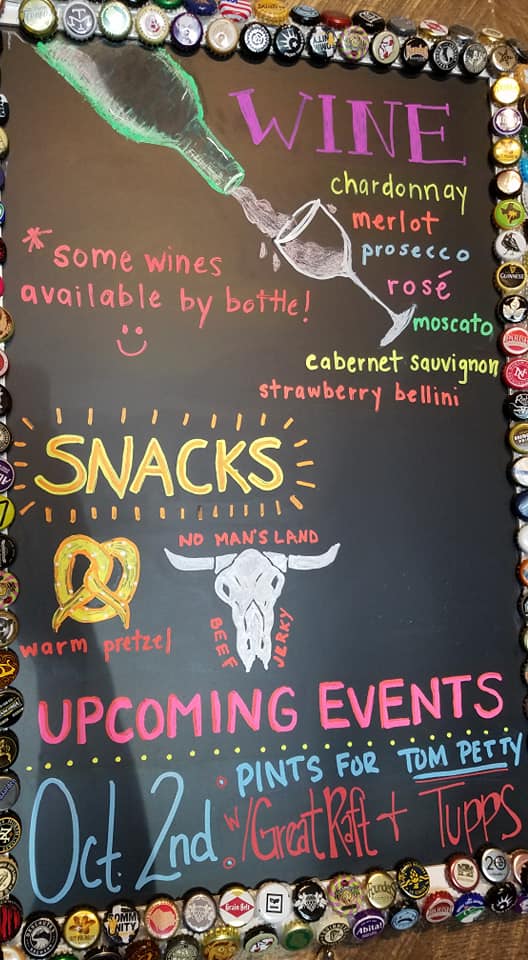 WINE
chardonnay
merlot
prosecco
rosé
moscato
cabernet sauvignon
strawberry bellini
*some wines
available by bottle!
SNACKS
warm pretzel
NO MAN'S LAND
BEEF
JERKY
UPCOMING EVENTS
Oct. 2nd
PINTS FOR TOM PETTY
w/Great Raft + Tupps
GUINNESS
Grain Belt
Abita!
20